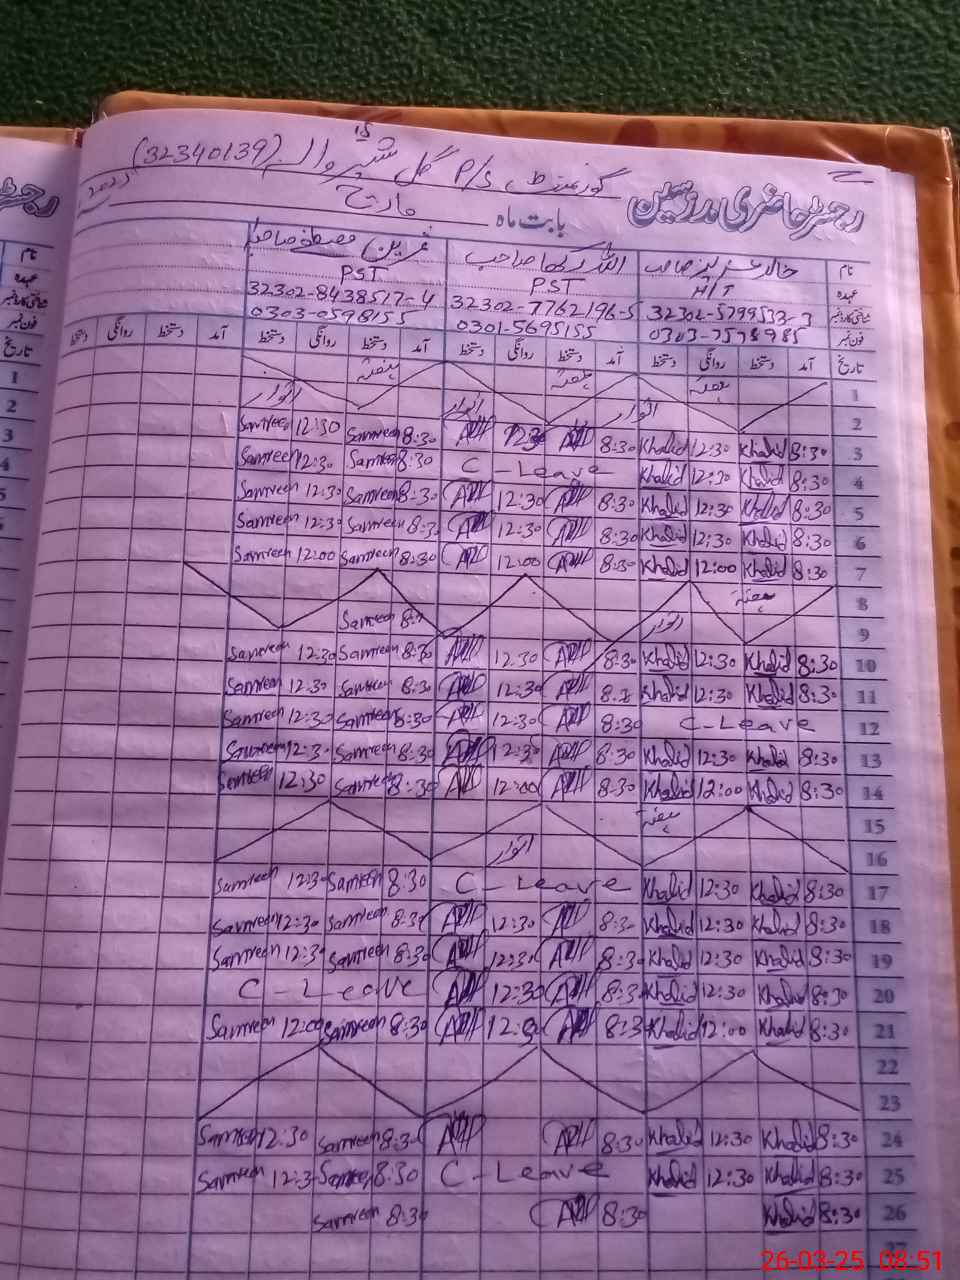 رجسٹر حاضری مدرسین گورنمنٹ P/S گل شیر والا (32340139)
بابت ماہ مارچ 2025
نام خالد صاحب اللہ صاحب مصطفیٰ صاحبہ
عہدہ H/T PST PST
شناختی کارڈ نمبر 32304-5799533-3 32302-7762196-5 32302-8438517-4
فون نمبر 0303-7578985 0301-5695155 0303-0598155
تاریخ آمد دستخط روانگی دستخط آمد دستخط روانگی دستخط آمد دستخط روانگی دستخط آمد دستخط روانگی دستخط
1 ہفتہ ہفتہ ہفتہ
2 اتوار اتوار اتوار
3 8:30 Khalid 12:30 Khalid 8:30 12:30 8:30 Samreen 12:30 Samreen
4 8:30 Khalid 12:30 Khalid C-Leave 8:30 Samreen 12:30 Samreen
5 8:30 Khalid 12:30 Khalid 8:30 12:30 8:30 Samreen 12:30 Samreen
6 8:30 Khalid 12:30 Khalid 8:30 12:30 8:3 Samreen 12:30 Samreen
7 8:30 Khalid 12:00 Khalid 8:30 12:00 8:30 Samreen 12:00 Samreen
8 ہفتہ
9 اتوار Samreen
10 8:30 Khalid 12:30 Khalid 8:30 12:30 8:30 Samreen 12:30 Samreen
11 8:30 Khalid 12:30 Khalid 8:3 12:30 8:30 Samreen 12:30 Samreen
12 C-Leave 8:30 12:30 8:30 Samreen 12:30 Samreen
13 8:30 Khalid 12:30 Khalid 8:30 12:30 8:30 Samreen 12:30 Samreen
14 8:30 Khalid 12:00 Khalid 8:30 12:00 8:30 Samreen 12:30 Samreen
15 ہفتہ
16 اتوار
17 8:30 Khalid 12:30 Khalid C-Leave 8:30 Samreen 12:30 Samreen
18 8:30 Khalid 12:30 Khalid 8:30 12:30 8:30 Samreen 12:30 Samreen
19 8:30 Khalid 12:30 Khalid 8:30 12:30 8:30 Samreen 12:30 Samreen
20 8:30 Khalid 12:30 Khalid 8:30 12:30 C-Leave
21 8:30 Khalid 12:00 Khalid 8:3 8:30 Samreen 12:00 Samreen
22
23
24 8:30 Khalid 12:30 Khalid 8:30 8:30 Samreen 12:30 Samreen
25 8:30 Khalid 12:30 Khalid C-Leave 8:30 Samreen 12:3 Samreen
26 8:30 Khalid 8:30 8:30 Samreen
27
26-03-25 08:51